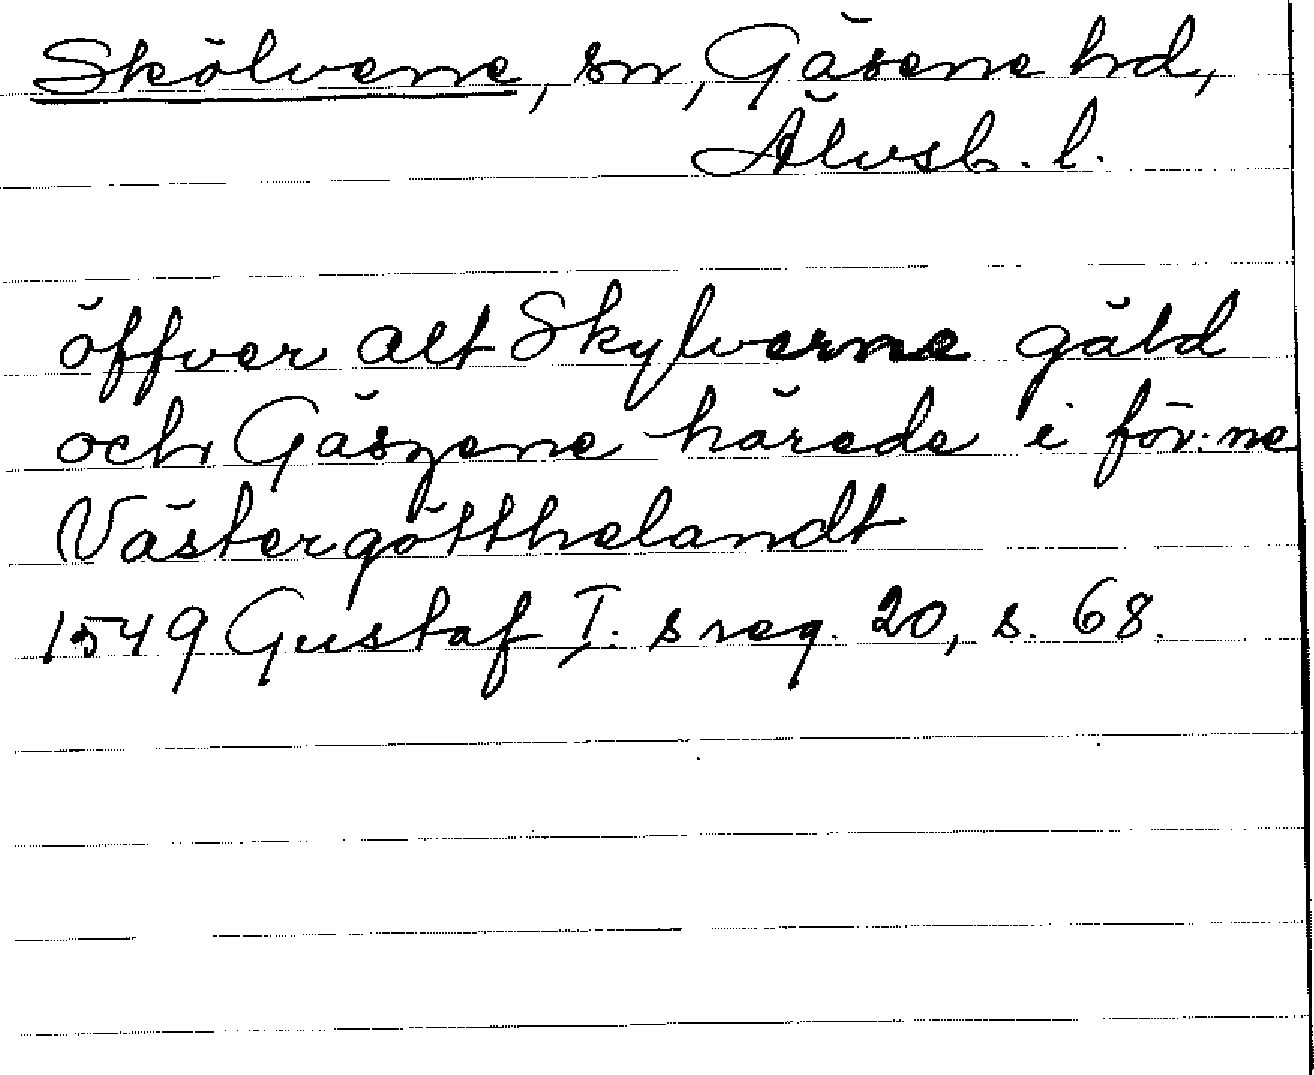 Skölvene, sn, Gäsene hd,
Älvsb. l.
öffver alt Skylverne gäld
och Gäszene härede i för:ne
Västergötthelandt
1549 Gustaf I:s reg. 20, s. 68.